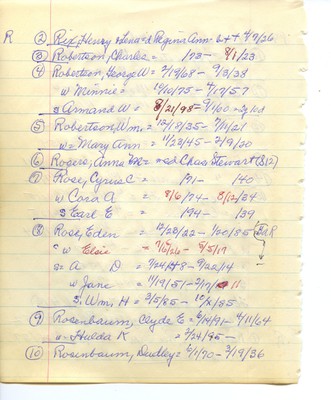 R
② Rix, Henry + Lena + Regina Ann. L++ 7/9/26
③ Robertson, Charles = 1/73 - 8/1/23
④ Robertson, George W = 2/19/68 - 9/13/38
w Minnie = 10/10/75 - 7/19/57
s Armand W = 8/21/98 - 9/1/60
⑤ Robertson, Wm. = 12/19/35 - 7/11/21
w = Mary Ann = 11/23/45 - 2/9/20
⑥ Rogers, Anna = Chas. Stewart (S12)
⑦ Rose, Cyrus C = 1/71 - 1/40
w Cora A = 8/6/74 - 8/12/34
s Earl E = 1/94 - 1/39
⑧ Rose, Eden = 12/28/22 - 1/20/85
" w Elsie = 7/15/26 - 8/5/17
s = A D = 7/24/48 - 9/22/14
w Jane = 11/19/51 - 2/7/11
s. Wm. H = 3/5/85 - 10/x/85
⑨ Rosenbaum, Clyde E = 6/14/91 - 4/11/64
w - Hulda K = 2/24/95 -
⑩ Rosenbaum, Dudley = 6/1/70 - 3/19/36